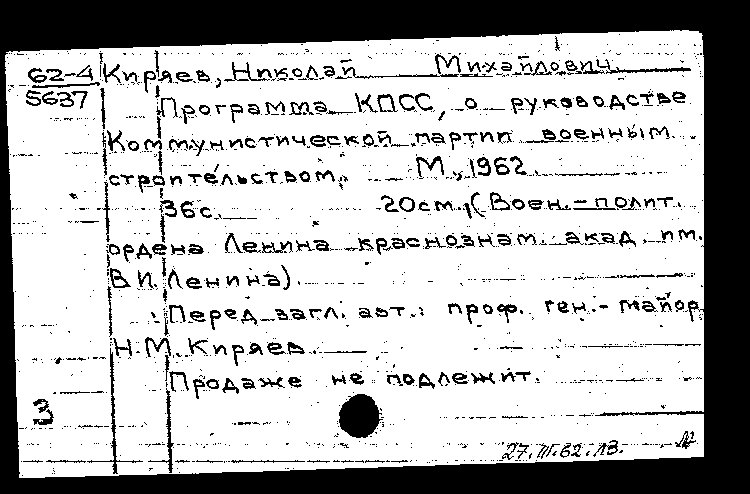 62-4 Киряев, Николай Михайлович.
5637
Программа КПСС, о руководстве
Коммунистической партии военным
строительством. М., 1962.
36с. 20см., (Воен.-полит.
ордена Ленина краснознам. акад. им.
В.И. Ленина).
Перед загл. авт.: проф. ген.-майор
Н.М. Киряев.
Продаже не подлежит.
3
27.III.62.